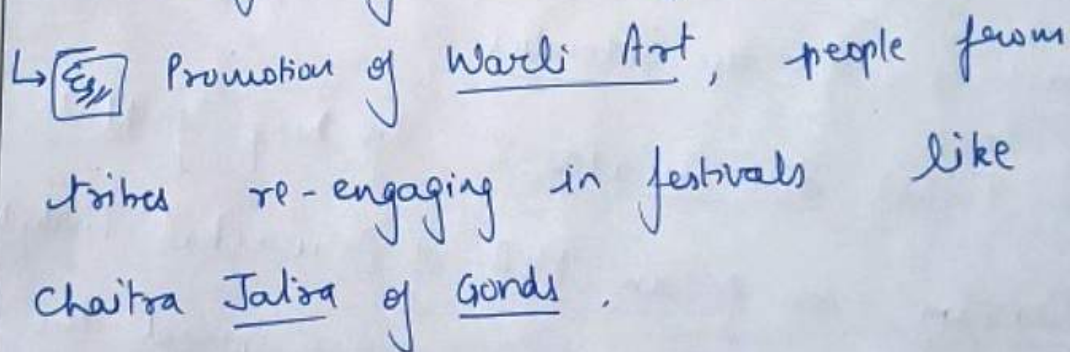 ↳ Eg. Promotion of Warli Art, people from
tribes re-engaging in festivals like
Chaitra Jatra of Gonds.